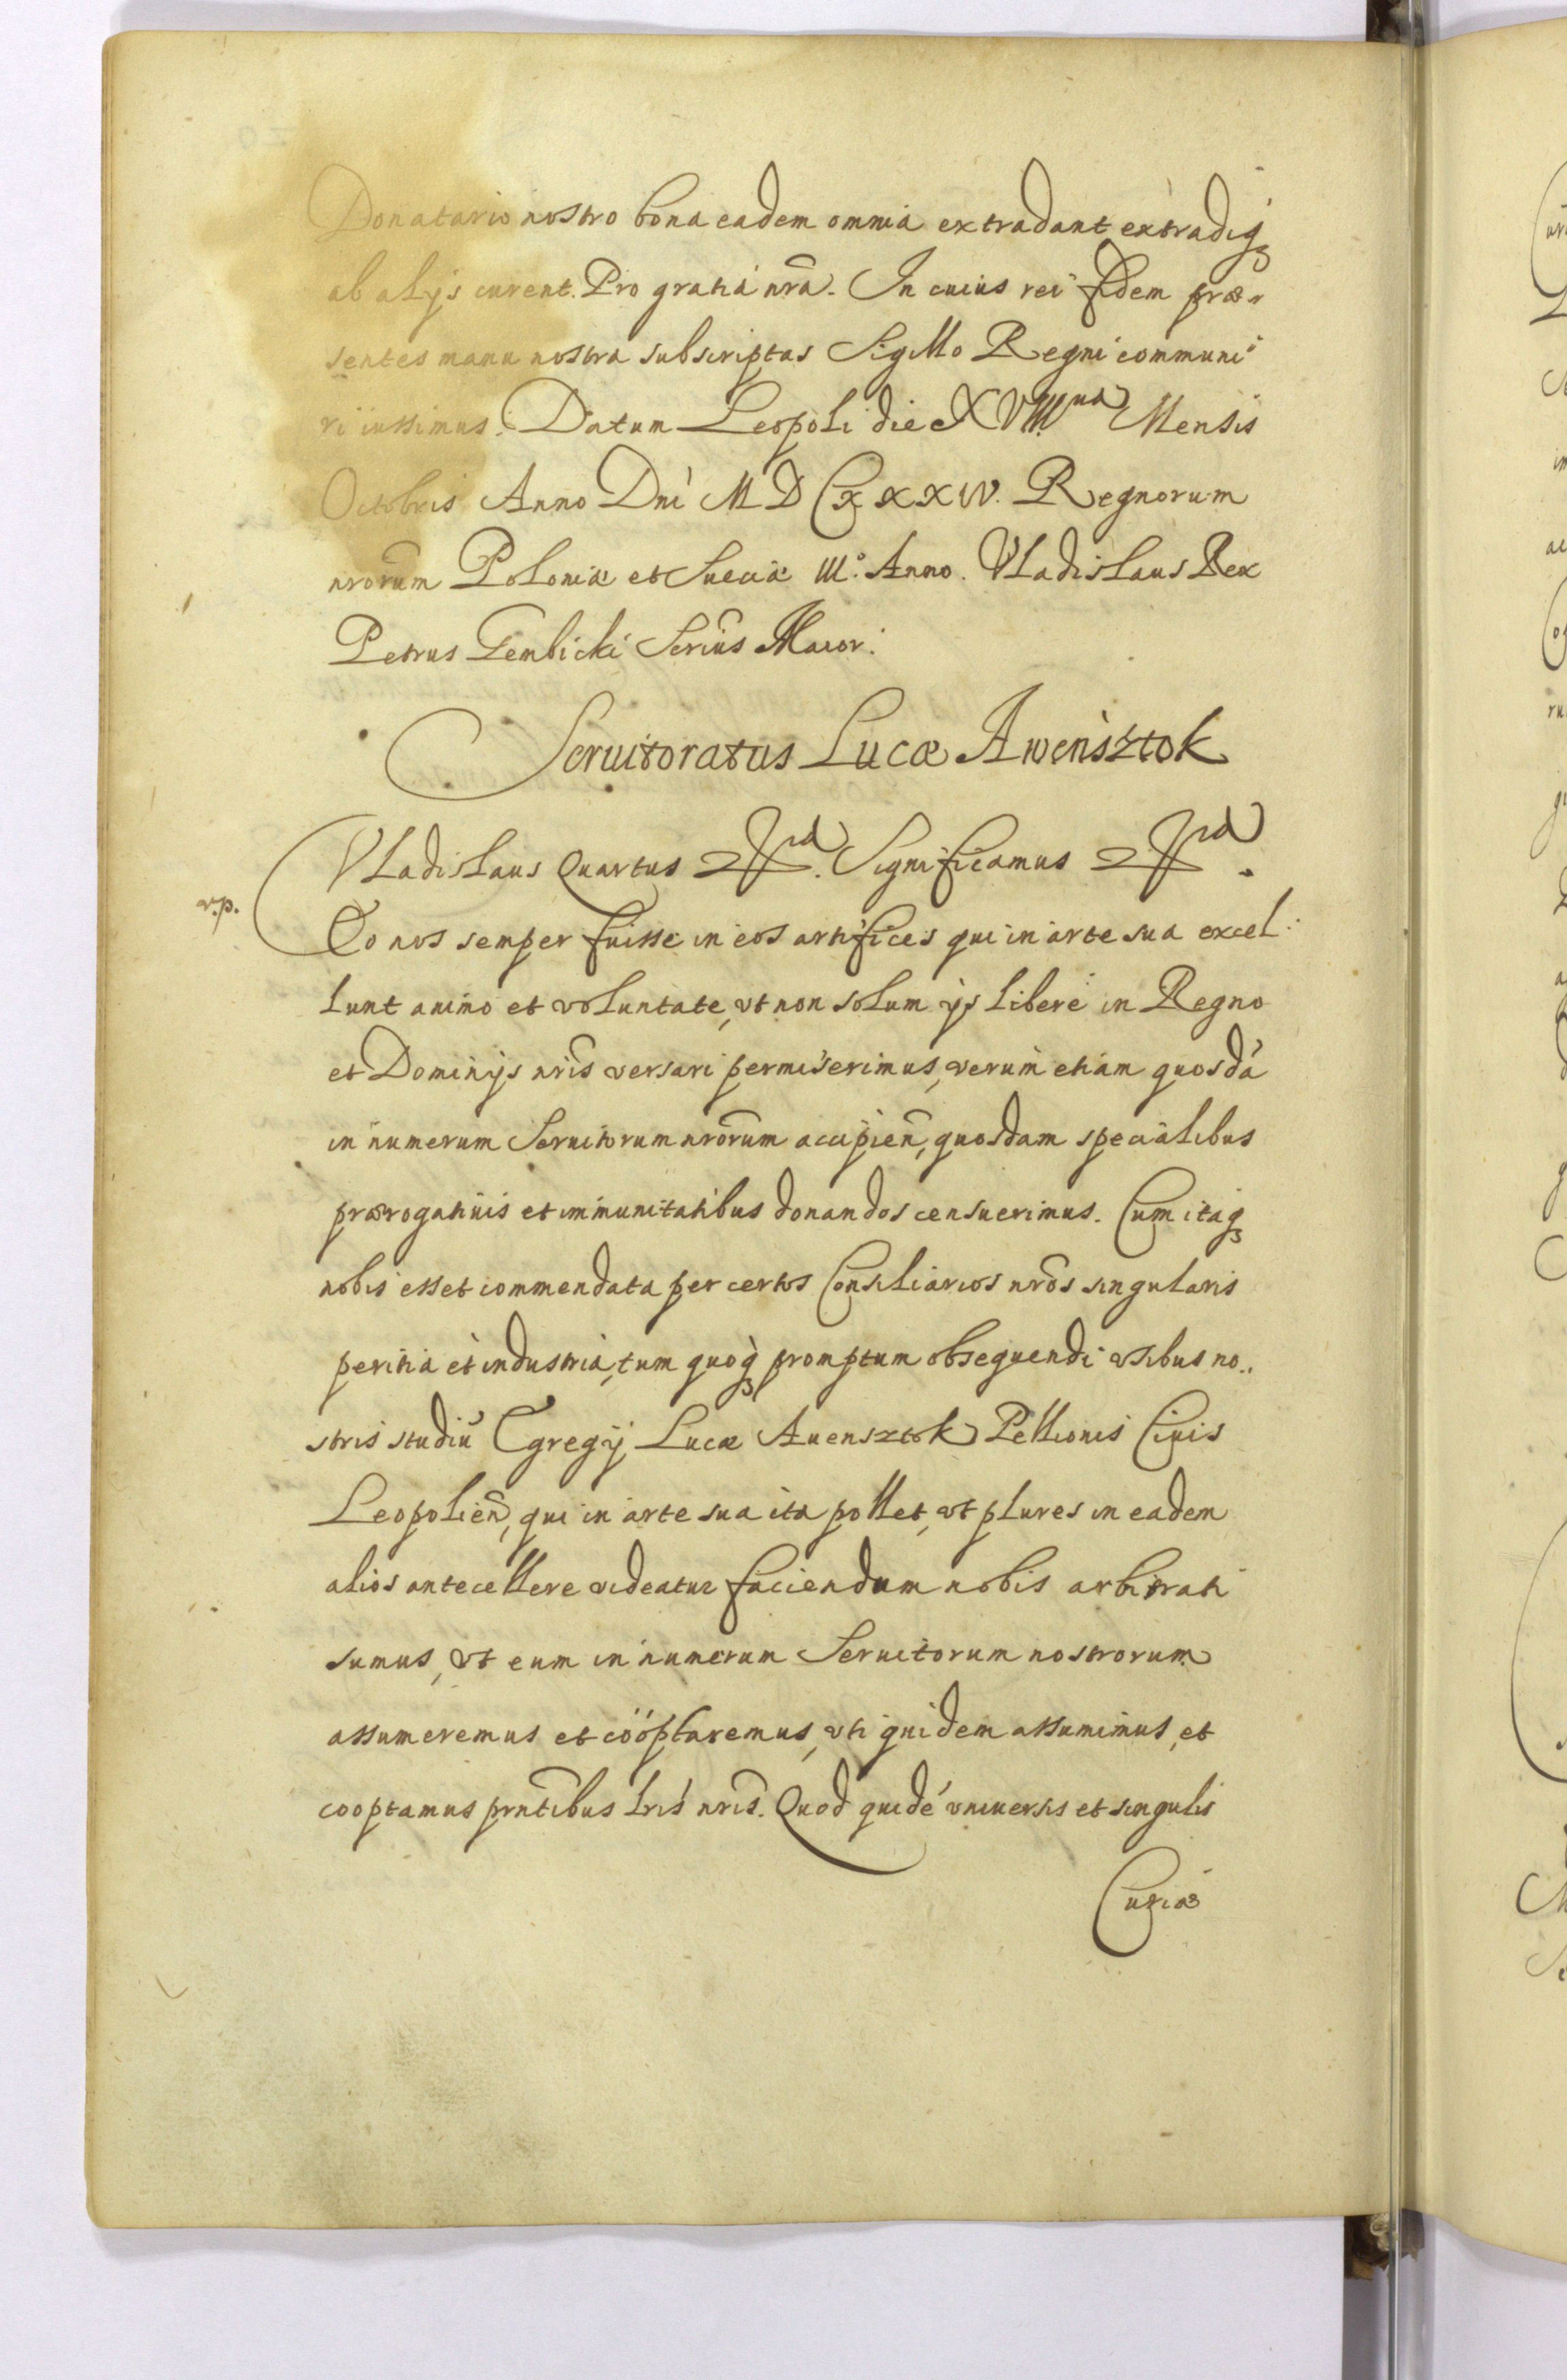 Donatario nostro bona eadem omnia extradant extradiq́ꝫ
ab alijs curent. Pro gratia nr̃a. In cuius rei fidem præ-
sentes manu nostra subscriptas Sigillo Regni communi
ri iussimus. Datum Leopoli die XVIII.na Mensis
Octobris Anno Dni MDCXXXIV. Regnorum
nr̃orum Poloniæ et Sueciæ III.o Anno. Vladislaus Rex
Petrus Gembicki Scrius Maior.
Seruitoratus Lucæ Awensztok
Vladislaus Quartus Significamus
v.p.
Eo nos semper fuisse in eos artifices qui in arte sua excel-
lunt animo et voluntate, vt non solum ijs libere in Regno
et Dominijs nr̃is versari permiserimus, verum etiam quosdã
in numerum Seruitorum nr̃orum accipien̄, quosdam specialibus
prærogatiuis et immunitatibus donandos censuerimus. Cum itaqꝫ
nobis esset commendata per certos Consiliarios nr̃os singularis
peritia et industria, tum quoqꝫ promptum obsequendi vsibus no..
stris studiũ Egregij Lucæ Auensztok Pellionis Ciuis
Leopolien̄, qui in arte sua ita pollet, vt plures in eadem
alios antecellere videatur faciendum nobis arbitrati
sumus, vt eum in numerum Seruitorum nostrorum
assumeremus et cööptaremus, vti quidem assumimus, et
cooptamus pr̃ntibus lris nr̃is. Quod quidẽ vniuersis et singulis
Curiæ